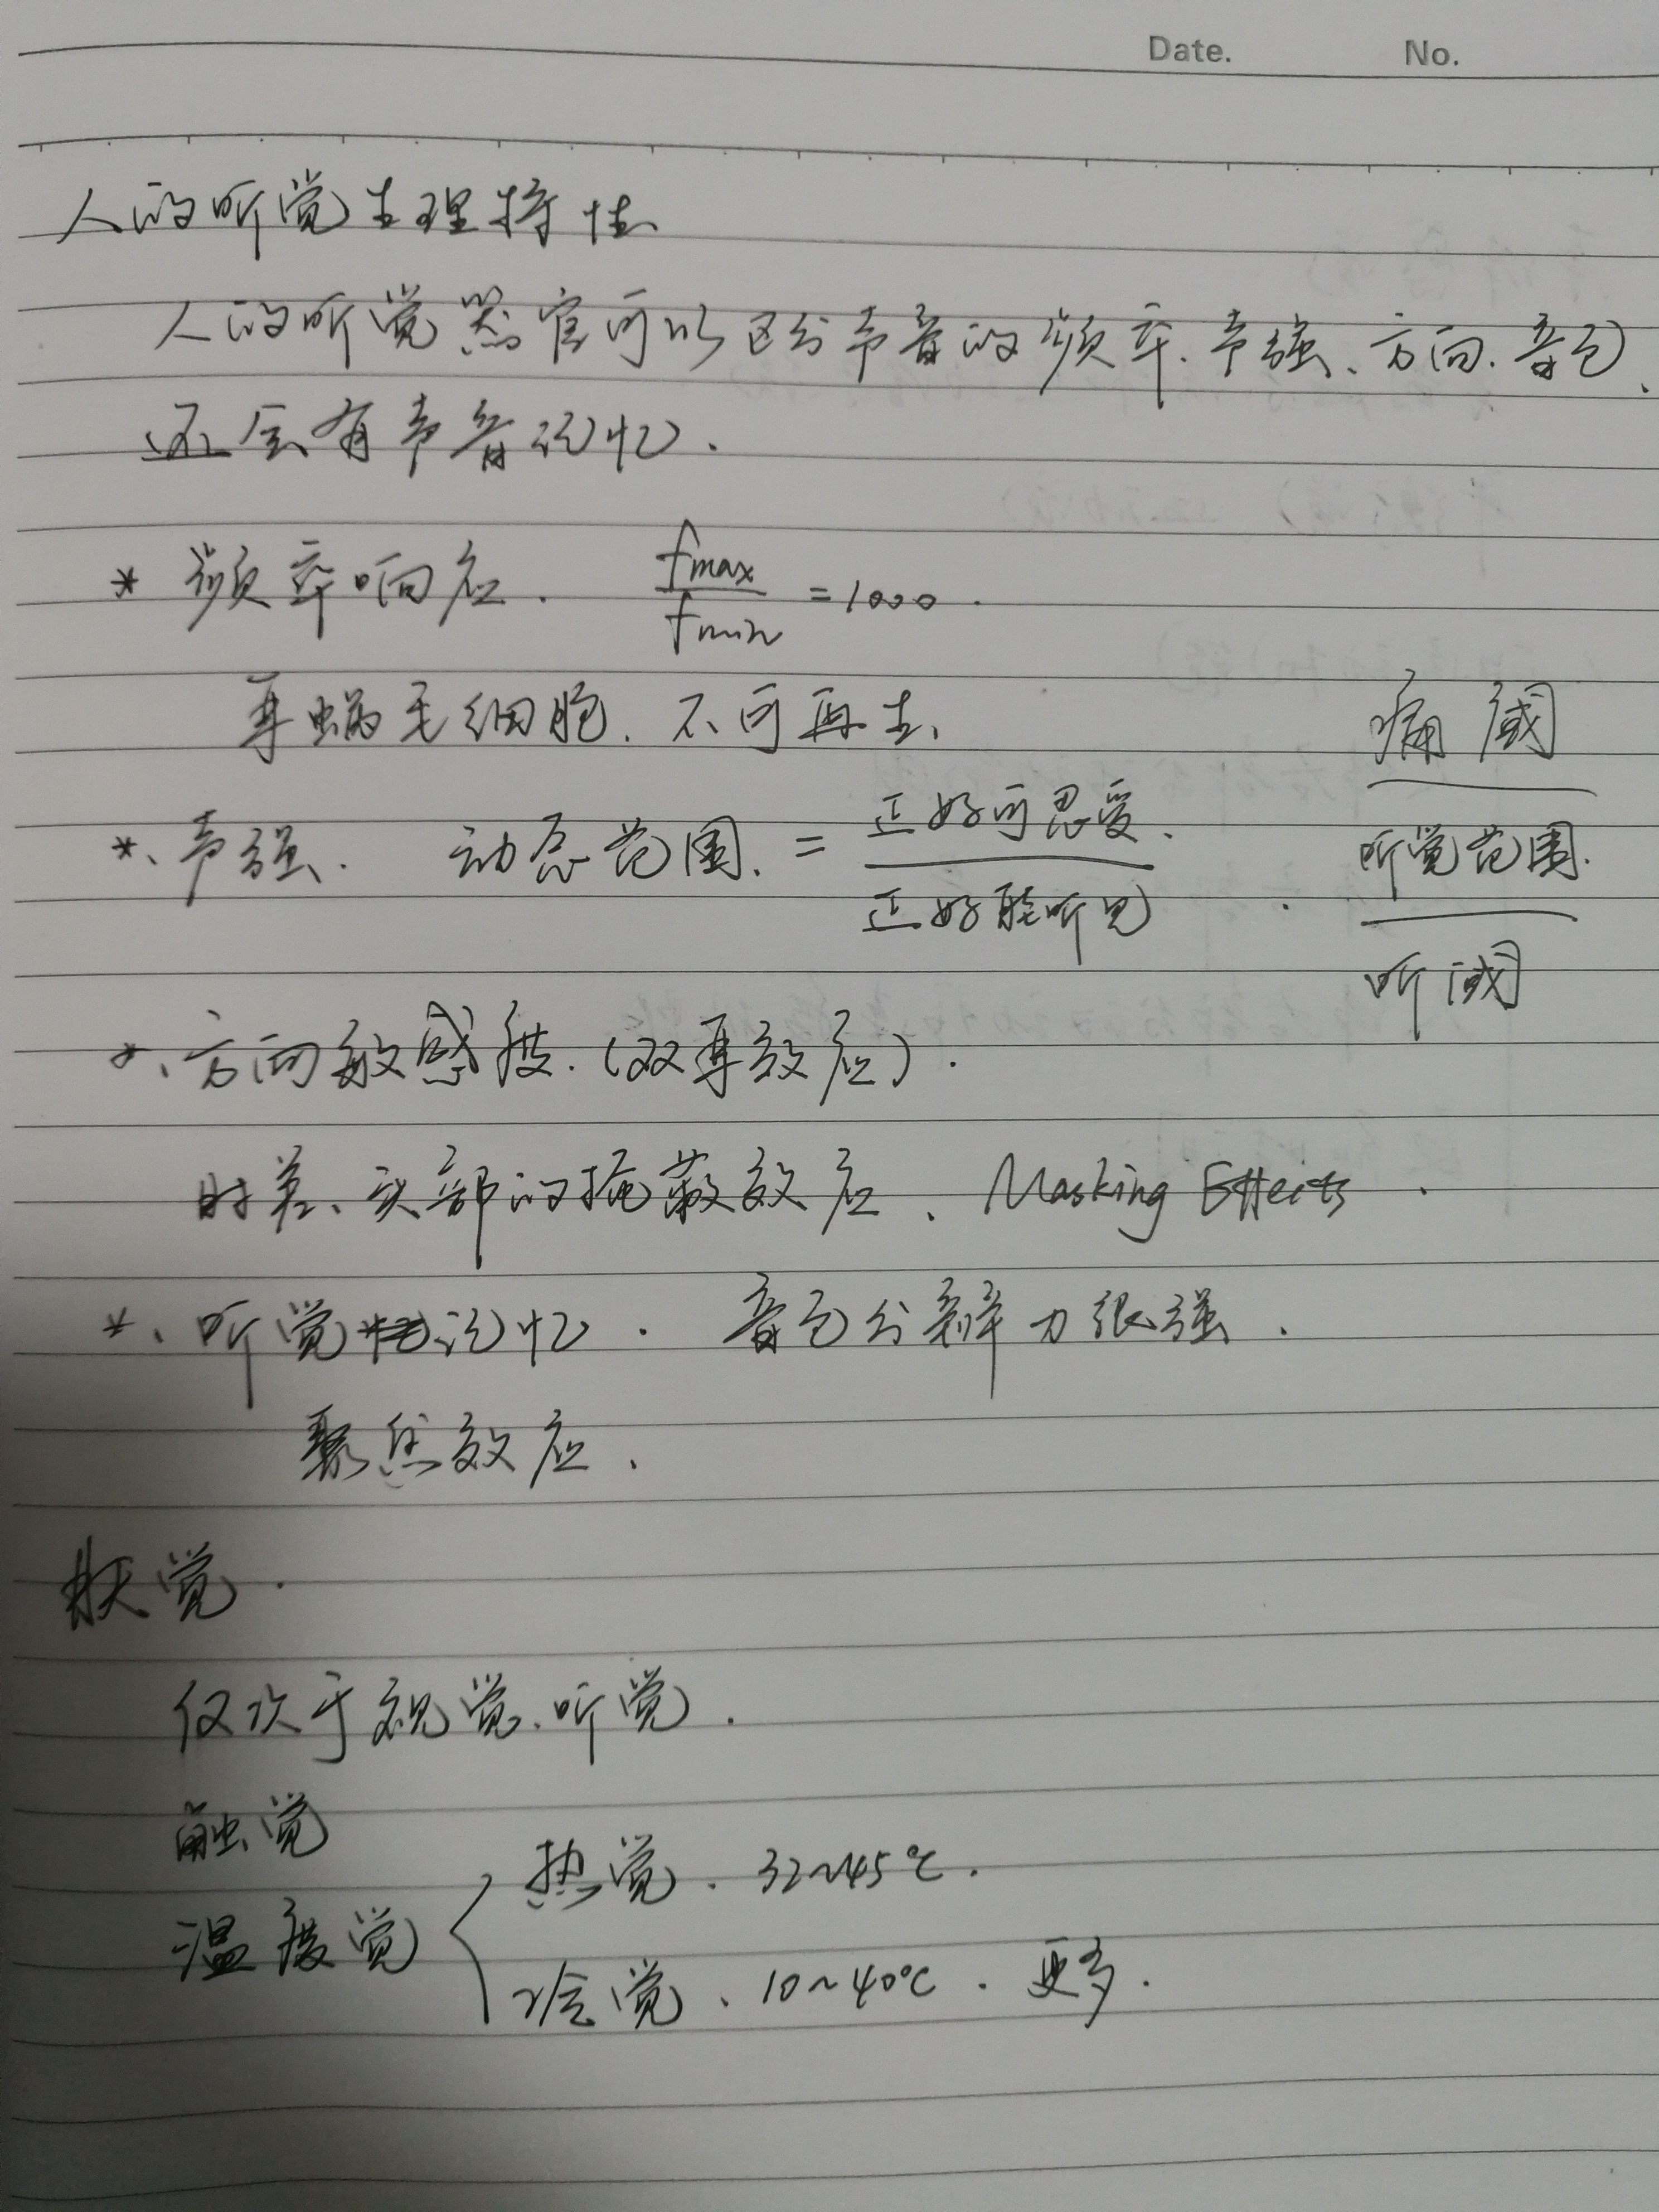 Date. No.
人的听觉生理特性
人的听觉器官可以区分声音的频率、声强、方向、音色、
还会有声音记忆.
* 频率响应. fmax/fmin = 1000.
耳蜗毛细胞. 不可再生、
痛阈
*、声强. 动态范围. = 正好可忍受. / 正好能听见
听觉范围.
听阈
*、方向敏感度.(双耳效应).
时差、头部的掩蔽效应、Masking Effects.
*、听觉记忆. 音色分辨力很强.
聚焦效应.
肤觉.
仅次于视觉、听觉.
触觉
温度觉 { 热觉. 32~45℃.
冷觉、10~40℃. 更多.